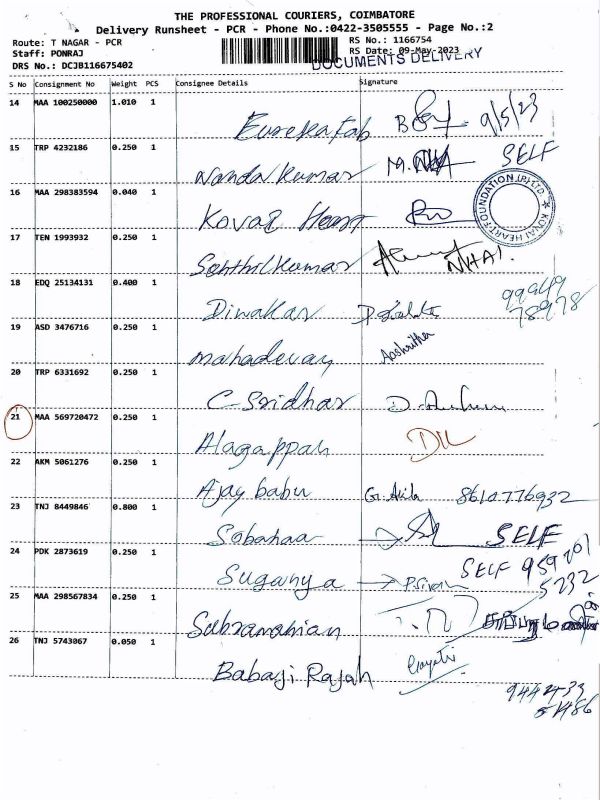 THE PROFESSIONAL COURIERS, COIMBATORE
Delivery Runsheet - PCR - Phone No.:0422-3505555 - Page No.:2
Route: T NAGAR - PCR RS No.: 1166754
Staff: PONRAJ RS Date: 09-May-2023
DRS No.: DCJB116675402 DOCUMENTS DELIVERY
S No Consignment No Weight PCS Consignee Details Signature
14 MAA 100250000 1.010 1
Eurekafab 9/5/23
15 TRP 4232186 0.250 1
Nandakumar SELF
16 MAA 298383594 0.040 1
Kovai Heart
KOVAI HEART FOUNDATION (P) LTD.
17 TEN 1993932 0.250 1
Senthilkumar NHAI.
18 EDQ 25134131 0.400 1
Diwakar 99949
78978
19 ASD 3476716 0.250 1
Mahadevan Aashritha
20 TRP 6331692 0.250 1
C Sridhar
21 MAA 569720472 0.250 1
Alagappan
22 AKM 5061276 0.250 1
Ajay babu G. Akila 8610776932
23 TNJ 8449846 0.800 1
Sobanaa SELF
24 PDK 2873619 0.250 1
Suganya SELF 959201
5232
25 MAA 298567834 0.250 1
Subramanian
26 TNJ 5743067 0.050 1
Babaji Rajah Gayatri
9442433
51486